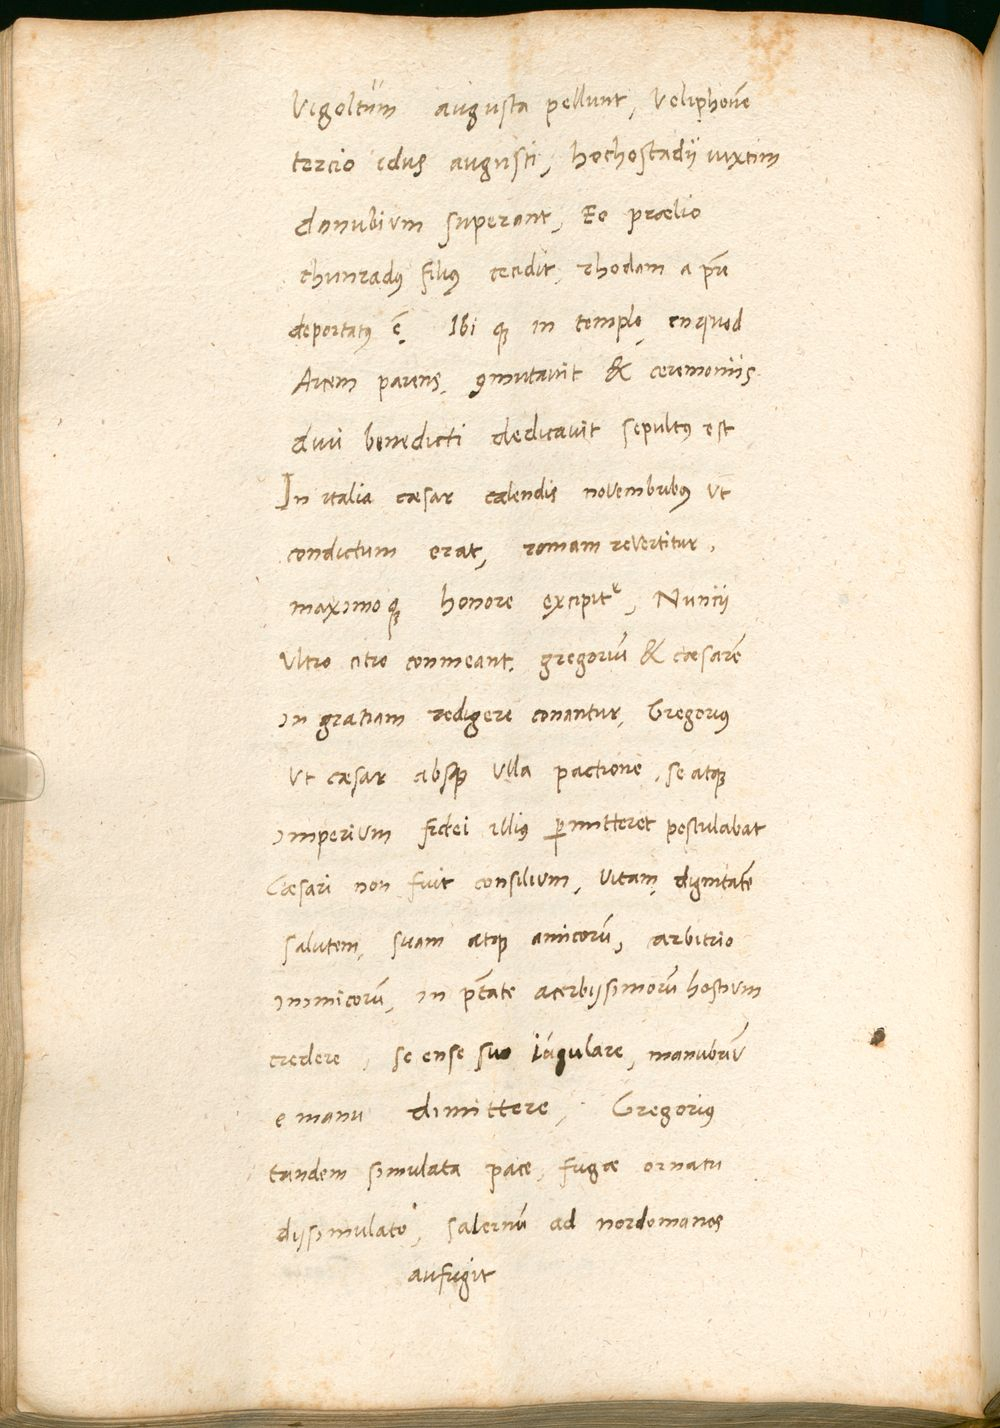 Vigoltūm augusta pellunt, Veliphonē
tercio idus augusti, hochostadij iuxtim
danubium superant, Eo prælio
chunradꝰ filiꝰ cecidit, rhodam a pr̄e
deportatꝰ ē, Ibi qꝫ in templo, enquod
Arcem parens, ꝯmutauit & ceremoniis
diui benedicti dedicauit sepultꝰ est
In italia cæsar calendis nouembribꝰ Vt
condictum erat, romam reVertitur,
maximo qꝫ honore excipitᵉ, Nuncij
Vltro citro conmeant, gregoriū & cæsarē
in gratiam redigere conantur, Gregoriꝰ
Vt cæsar absqꝫ Vlla pactione, se atqꝫ
imperium fidei illiꝰ ꝑmitteret postulabat
Cæsari non fuit consilium, Vitam, dignitatē
salutem, suam atqꝫ amicorū, arbitrio
inimicorū, in ptāte acerbissimorū hostium
credere, se ense suo iugulare, manubriū
e manu dimittere, Gregoriꝰ
tandem simulata pace, fugæ ornatu
dissimulato, salernū ad nordomanos
aufugit